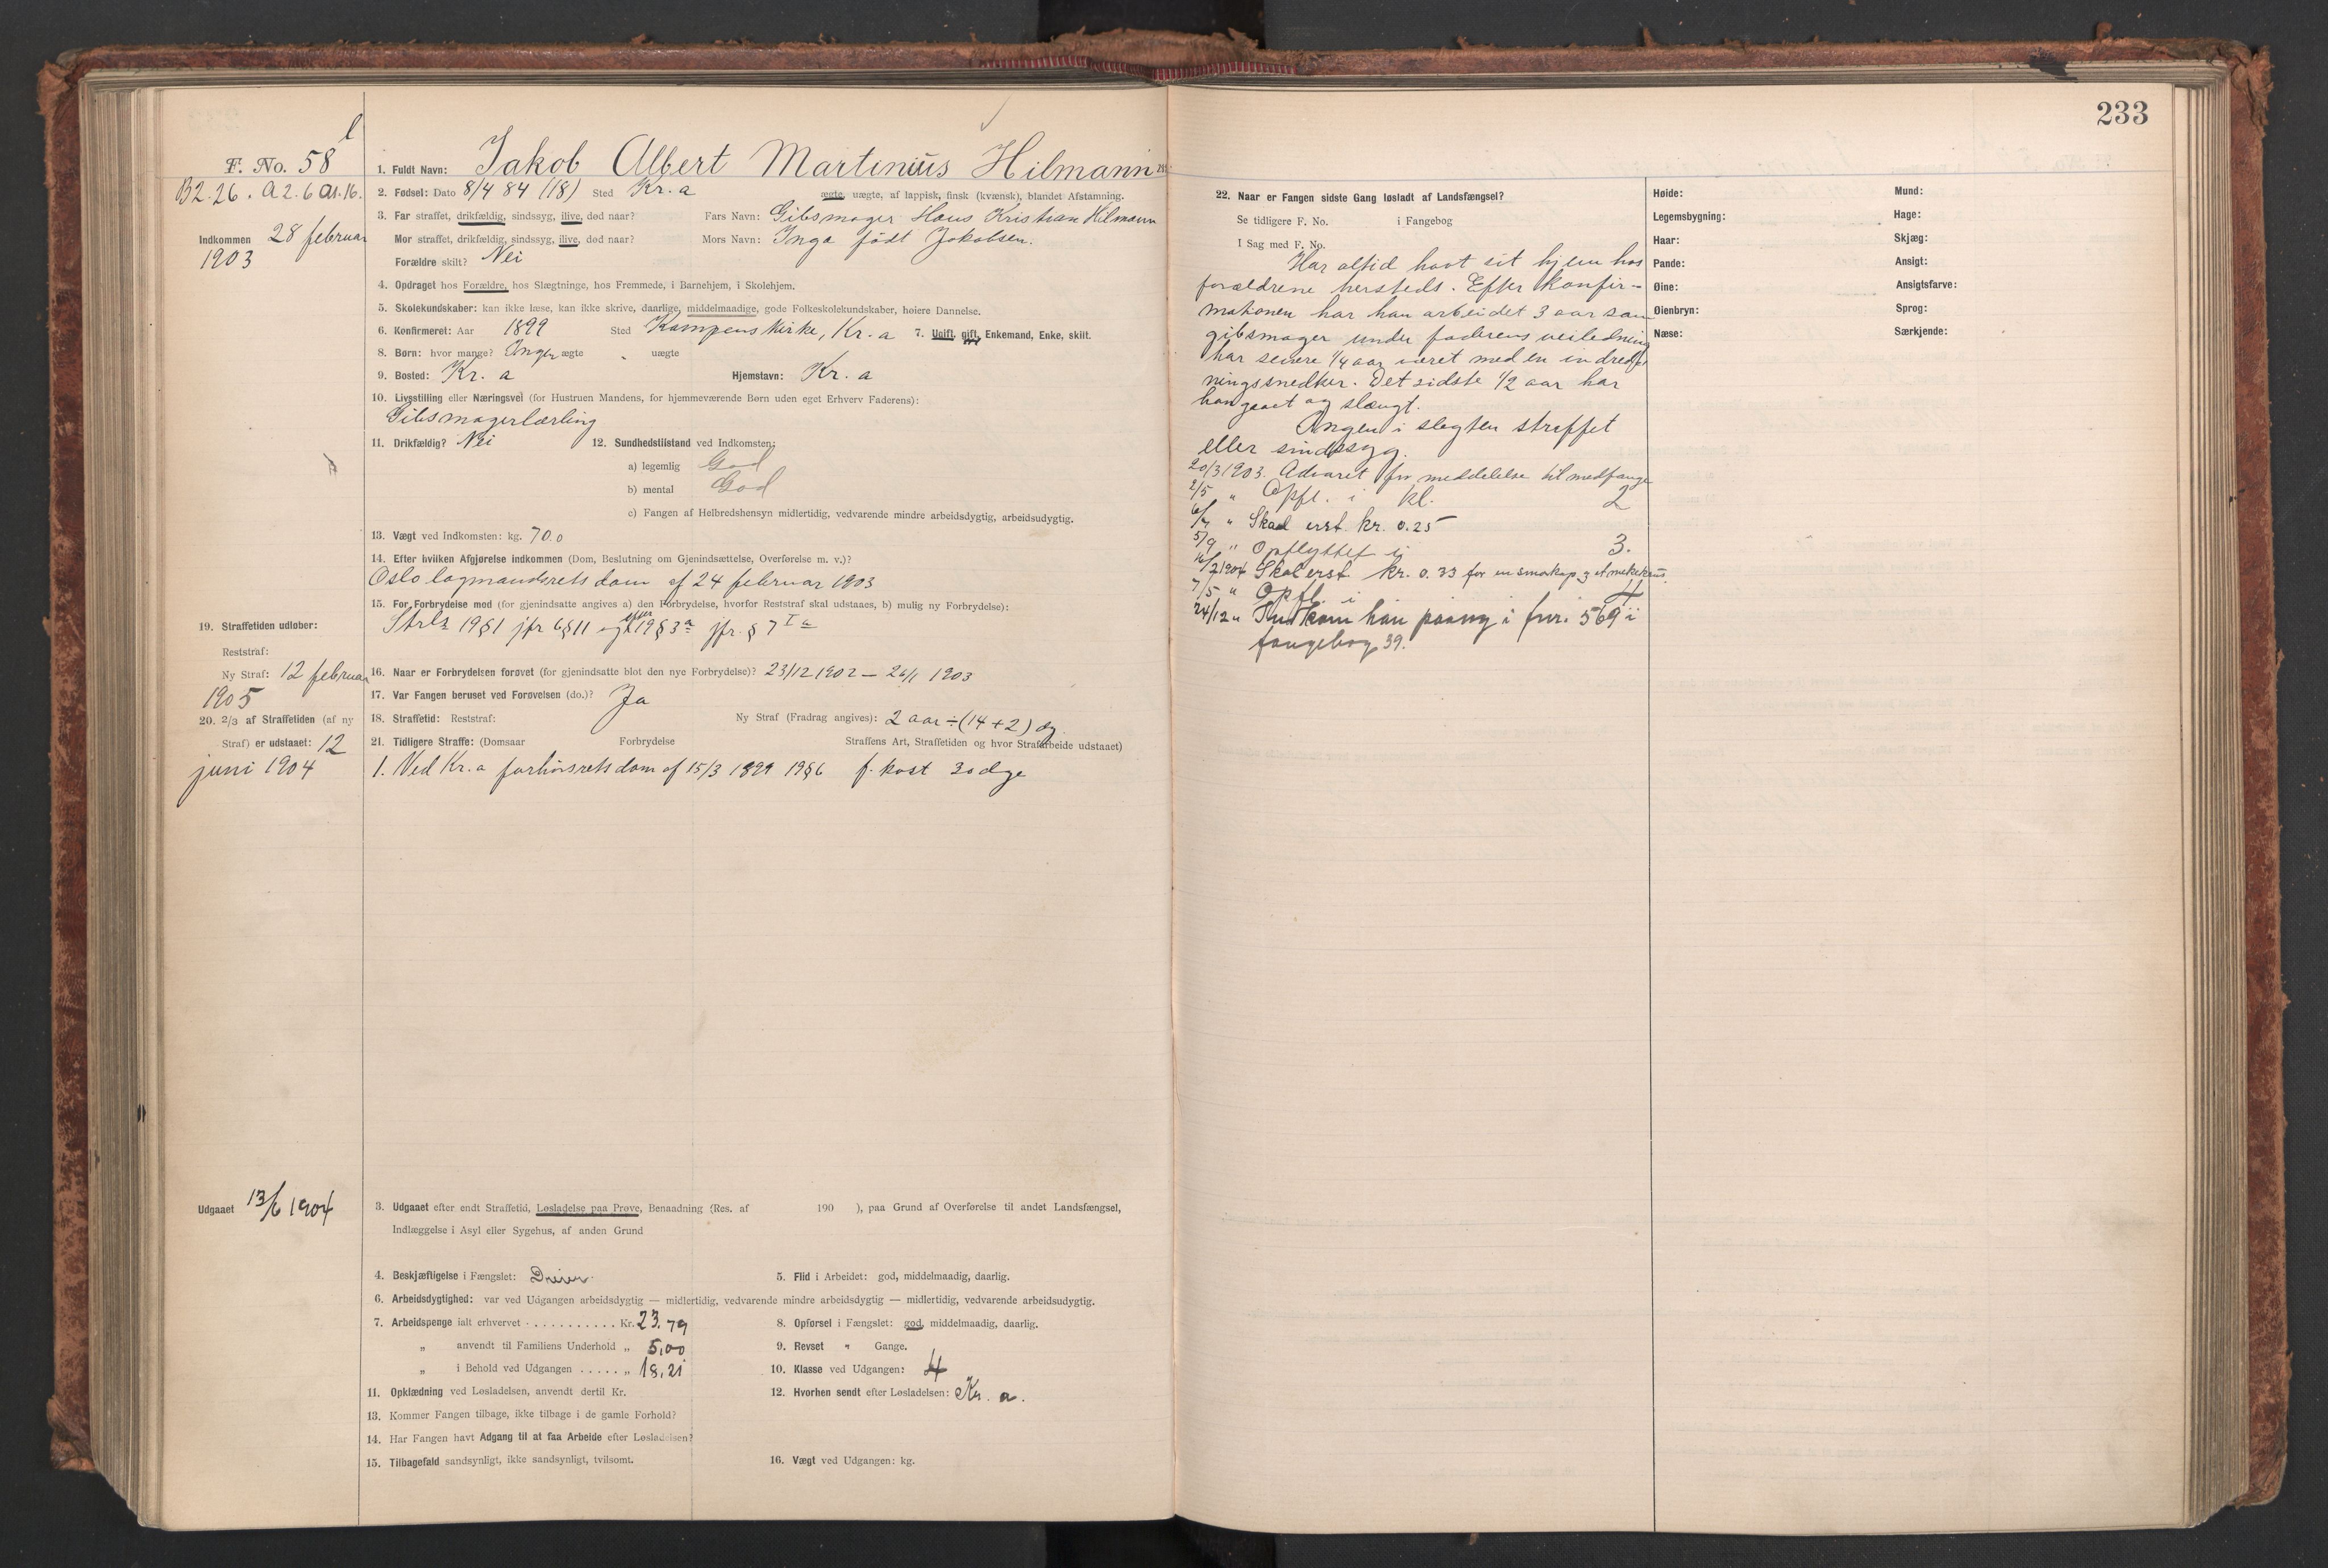 233
F. No. 58
B2.26. A2.6 A1.16.
Indkommen 28 februar
1903
19. Straffetiden udløber:
Reststraf:
Ny Straf: 12 februar
1905
20. 2/3 af Straffetiden (af ny
Straf) er udstaaet: 12
juni 1904
Udgaaet 13/6 1904
1. Fuldt Navn: Jakob Albert Martinius Hilmann
2. Fødsel: Dato 8/4 84 (18) Sted Kr.a ægte, uægte, af lappisk, finsk (kvænsk), blandet Afstamning.
3. Far straffet, drikfældig, sindssyg, ilive, død naar? Fars Navn: Gibsmager Hans Kristian Hilmann
Mor straffet, drikfældig, sindssyg, ilive, død naar? Mors Navn: Inga født Jakobsen.
Forældre skilt? Nei
4. Opdraget hos Forældre, hos Slægtninge, hos Fremmede, i Barnehjem, i Skolehjem.
5. Skolekundskaber: kan ikke læse, kan ikke skrive, daarlige, middelmaadige, gode Folkeskolekundskaber, høiere Dannelse.
6. Konfirmeret: Aar 1899 Sted Kampens kirke, Kr.a 7. Ugift, gift, Enkemand, Enke, skilt.
8. Børn: hvor mange? Ingen ægte " uægte
9. Bosted: Kr. a Hjemstavn: Kr. a
10. Livsstilling eller Næringsvei (for Hustruen Mandens, for hjemmeværende Børn uden eget Erhverv Faderens):
Gibsmagerlærling
11. Drikfældig? Nei 12. Sundhedstilstand ved Indkomsten:
a) legemlig God
b) mental God
c) Fangen af Helbredshensyn midlertidig, vedvarende mindre arbeidsdygtig, arbeidsudygtig.
13. Vægt ved Indkomsten: kg. 70.0
14. Efter hvilken Afgjørelse indkommen (Dom, Beslutning om Gjenindsættelse, Overførelse m. v.)?
Oslo lagmandsrets dom af 24 februar 1903
15. For Forbrydelse mod (for gjenindsatte angives a) den Forbrydelse, hvorfor Reststraf skal udstaaes, b) mulig ny Forbrydelse):
Strls 19§1 jfr 6§11 og 19§3a jfr. § 7 I a
16. Naar er Forbrydelsen forøvet (for gjenindsatte blot den nye Forbrydelse)? 23/12 1902 – 26/1 1903
17. Var Fangen beruset ved Forøvelsen (do.)? Ja
18. Straffetid: Reststraf: Ny Straf (Fradrag angives): 2 aar ÷ (14 + 2) dg.
21. Tidligere Straffe: (Domsaar Forbrydelse Straffens Art, Straffetiden og hvor Strafarbeide udstaaet)
1. Ved Kr.a forhørsrets dom af 15/3 1899 19§6 f. kost 30 dge
3. Udgaaet efter endt Straffetid, Løsladelse paa Prøve, Benaadning (Res. af 190 ), paa Grund af Overførelse til andet Landsfængsel,
Indlæggelse i Asyl eller Sygehus, af anden Grund
4. Beskjæftigelse i Fængslet: 5. Flid i Arbeidet: god, middelmaadig, daarlig.
6. Arbeidsdygtighed: var ved Udgangen arbeidsdygtig — midlertidig, vedvarende mindre arbeidsdygtig — midlertidig, vedvarende arbeidsudygtig.
7. Arbeidspenge ialt erhvervet . . . . . . . . . . . Kr. 23.79 8. Opførsel i Fængslet: god, middelmaadig, daarlig.
" anvendt til Familiens Underhold " 5,00 9. Revset " Gange.
" i Behold ved Udgangen . . . . . " 18,21 10. Klasse ved Udgangen: 4
11. Opklædning ved Løsladelsen, anvendt dertil Kr. 12. Hvorhen sendt efter Løsladelsen: Kr. a.
13. Kommer Fangen tilbage, ikke tilbage i de gamle Forhold?
14. Har Fangen havt Adgang til at faa Arbeide efter Løsladelsen?
15. Tilbagefald sandsynligt, ikke sandsynligt, tvilsomt. 16. Vægt ved Udgangen: kg.
22. Naar er Fangen sidste Gang løsladt af Landsfængsel?
Se tidligere F. No. i Fangebog
I Sag med F. No.
Har altid havt sit hjem hos
forældrene hersteds. Efter konfir-
mationen har han arbeidet 3 aar som
gibsmager under faderens veiledning
har senere 1/4 aar været med en indred-
ningssnedker. Det sidste 1/2 aar har
han gaaet og slængt.
Ingen i slegten straffet
eller sindssyg.
20/3 1903. Advaret for meddelelse til medfange
2/5 " Opfl. i kl. 2
6/7 " Skad erst. kr. 0.25
5/9 " Opflyttet i 3.
16/2 1904 Skaderst. kr. 0.33 for en smørkop og et melkekrus.
7/5 " Opfl. i 4
24/12 " Indkom han paany i fnr. 569 i
fangebog 39.
Høide: Mund:
Legemsbygning: Hage:
Haar: Skjæg:
Pande: Ansigt:
Øine: Ansigtsfarve:
Øienbryn: Sprog:
Næse: Særkjende: